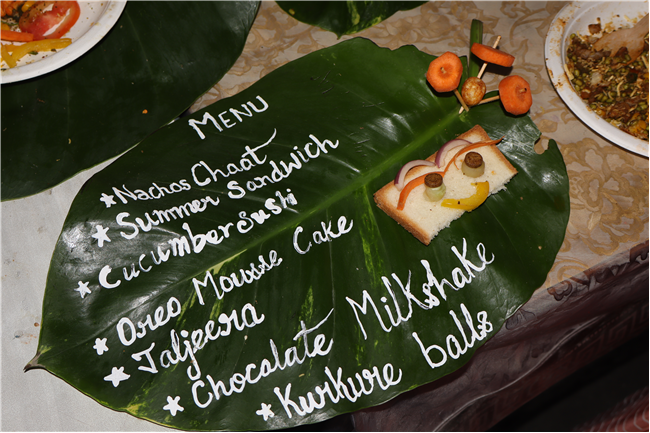 MENU
Nachos Chaat
Summer Sandwich
Cucumber sushi
Oreo Mousse Cake
Jaljeera
Chocolate Milkshake
Kurkure balls